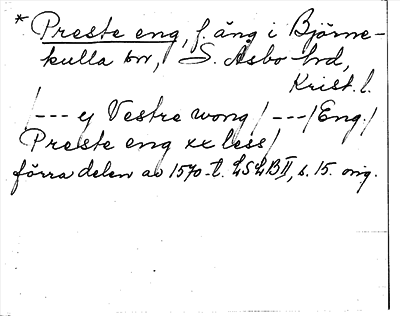 * Preste eng, f. äng i Björne-
kulla sn, S. Åsbo hd,
Krist. l.
/--- ej Vestre wong / ---/Eng./
Preste eng xx less/
förra delen av 1570-t. LSLB II, s. 15. orig.